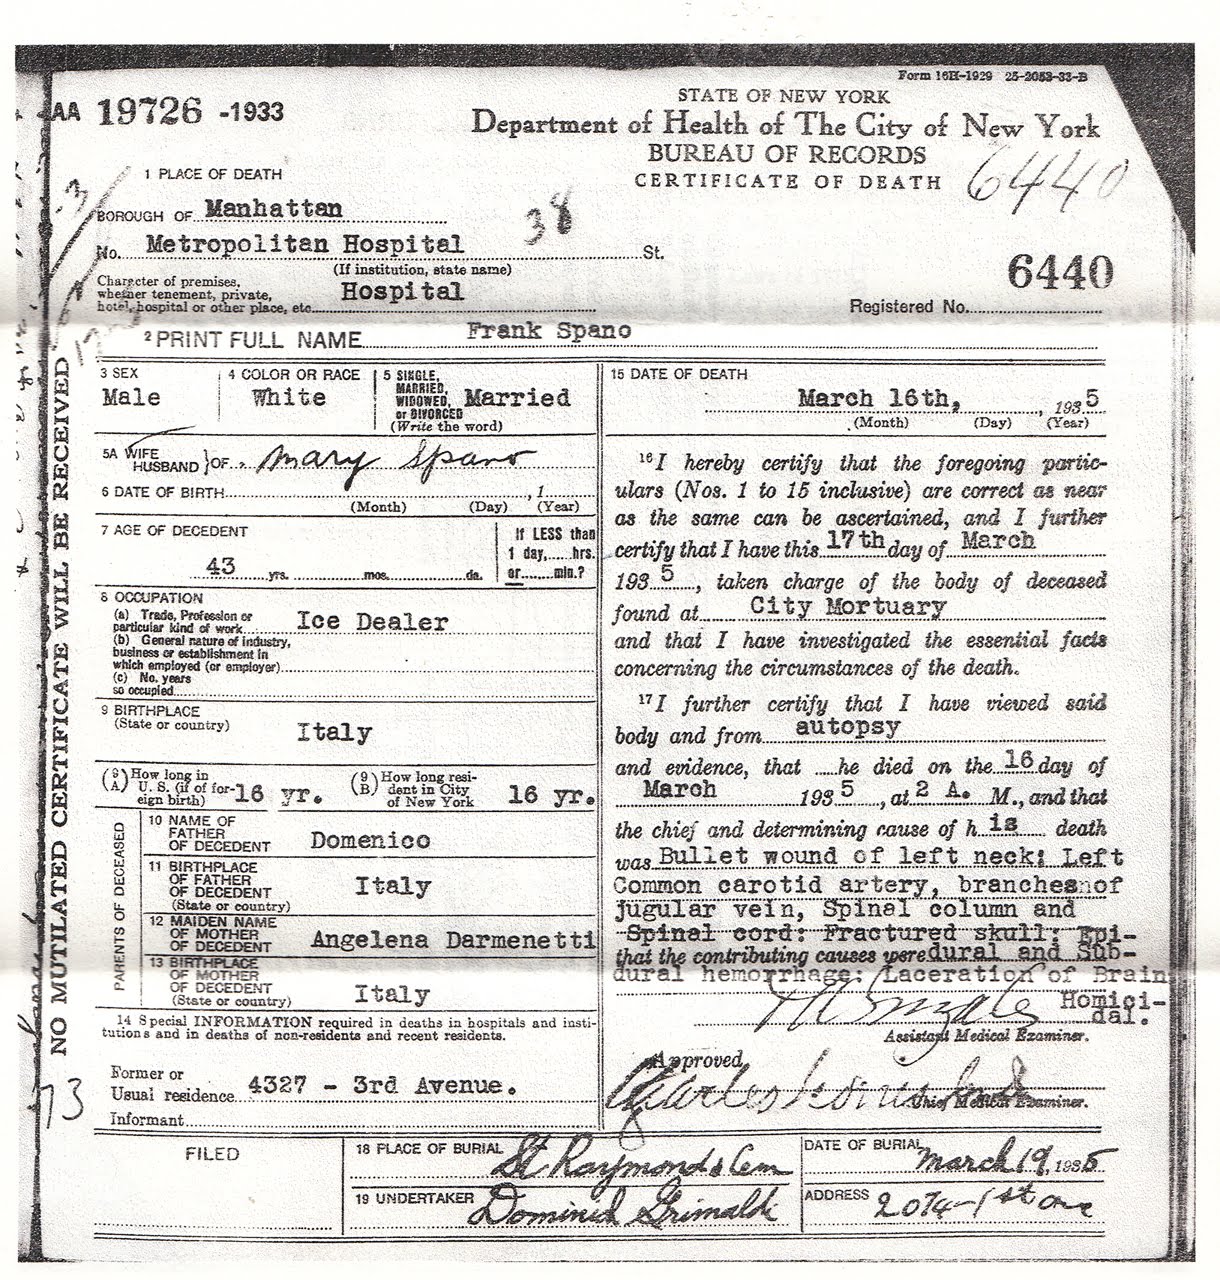 Form 16H-1929 25-2053-33-B
AA 19726 -1933
STATE OF NEW YORK
Department of Health of The City of New York
BUREAU OF RECORDS
CERTIFICATE OF DEATH
6440
1 PLACE OF DEATH
BOROUGH OF Manhattan
38
No. Metropolitan Hospital St.
(If institution, state name)
Character of premises,
whether tenement, private,
hotel, hospital or other place, etc. Hospital
6440
Registered No.
2 PRINT FULL NAME Frank Spano
3 SEX
Male
4 COLOR OR RACE
White
5 SINGLE,
MARRIED,
WIDOWED,
or DIVORCED
(Write the word)
Married
5A WIFE
HUSBAND } OF Mary Spano
6 DATE OF BIRTH , 1
(Month) (Day) (Year)
7 AGE OF DECEDENT
43 yrs. mos. da.
If LESS than
1 day, hrs.
or min.?
8 OCCUPATION
(a) Trade, Profession or
particular kind of work Ice Dealer
(b) General nature of industry,
business or establishment in
which employed (or employer)
(c) No. years
so occupied
9 BIRTHPLACE
(State or country) Italy
(9A) How long in
U. S. (if of for-
eign birth) 16 yr.
(9B) How long resi-
dent in City
of New York 16 yr.
PARENTS OF DECEASED
10 NAME OF
FATHER
OF DECEDENT Domenico
11 BIRTHPLACE
OF FATHER
OF DECEDENT
(State or country) Italy
12 MAIDEN NAME
OF MOTHER
OF DECEDENT Angelena Darmenetti
13 BIRTHPLACE
OF MOTHER
OF DECEDENT
(State or country) Italy
14 Special INFORMATION required in deaths in hospitals and insti-
tutions and in deaths of non-residents and recent residents.
Former or
Usual residence 4327 - 3rd Avenue.
Informant
15 DATE OF DEATH
March 16th, , 1935
(Month) (Day) (Year)
16 I hereby certify that the foregoing partic-
ulars (Nos. 1 to 15 inclusive) are correct as near
as the same can be ascertained, and I further
certify that I have this 17th day of March
1935, taken charge of the body of deceased
found at City Mortuary
and that I have investigated the essential facts
concerning the circumstances of the death.
17 I further certify that I have viewed said
body and from autopsy
and evidence, that he died on the 16 day of
March 1935, at 2 A. M., and that
the chief and determining cause of h is death
was Bullet wound of left neck: Left
Common carotid artery, branches of
jugular vein, Spinal column and
Spinal cord: Fractured skull; Epi-
that the contributing causes were dural and Sub-
dural hemorrhage: Laceration of Brain
Homici-
dal.
Assistant Medical Examiner.
Approved
Charles Norris
Chief Medical Examiner.
FILED
18 PLACE OF BURIAL St Raymonds Cem
DATE OF BURIAL March 19, 1935
19 UNDERTAKER Dominick Grimaldi
ADDRESS 2074-1st Ave
NO MUTILATED CERTIFICATE WILL BE RECEIVED
73